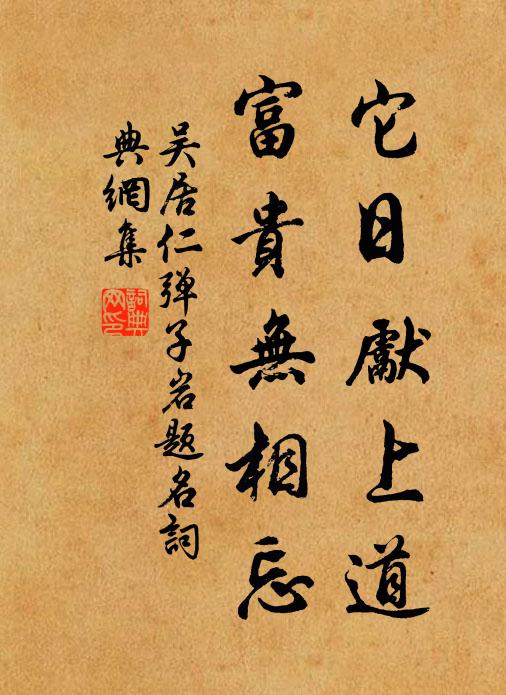 它日獻上道
富貴無相忘
吴居仁弹子岩题名詞
典網集
詞典
网印